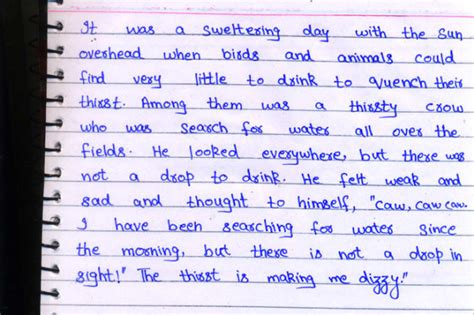 It was a sweltering day with the sun
overhead when birds and animals could
find very little to drink to quench their
thirst. Among them was a thirsty crow
who was search for water all over the
fields. He looked everywhere, but there was
not a drop to drink. He felt weak and
sad and thought to himself, "caw, caw caw.
I have been searching for water since
the morning, but there is not a drop in
sight!" The thirst is making me dizzy."